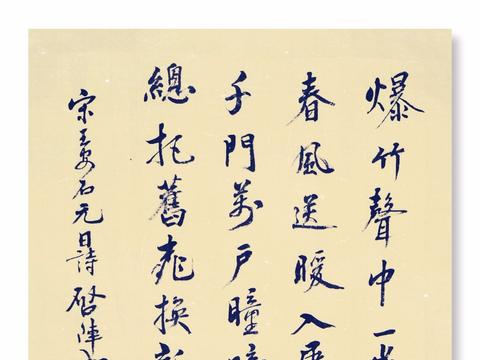 爆竹聲中一
春風送暖入
千門萬戶曈
總把舊桃換新
宋王安石元日詩